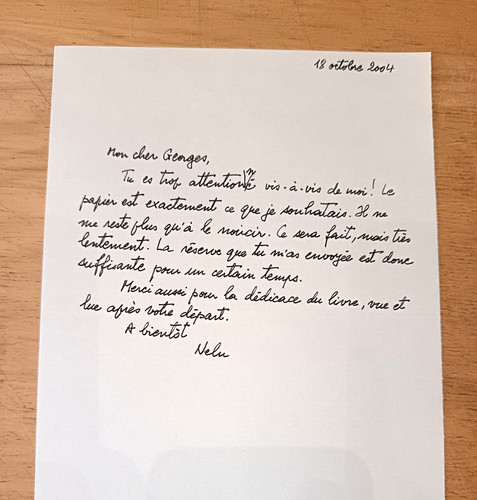 18 octobre 2004
Mon cher Georges,
Tu es trop attentionné vis-à-vis de moi! Le
papier est exactement ce que je souhaitais. Il ne
me reste plus qu'à le noircir. Ce sera fait, mais très
lentement. La réserve que tu m'as envoyée est donc
suffisante pour un certain temps.
Merci aussi pour la dédicace du livre, vue et
lue après votre départ.
A bientôt
Nelu